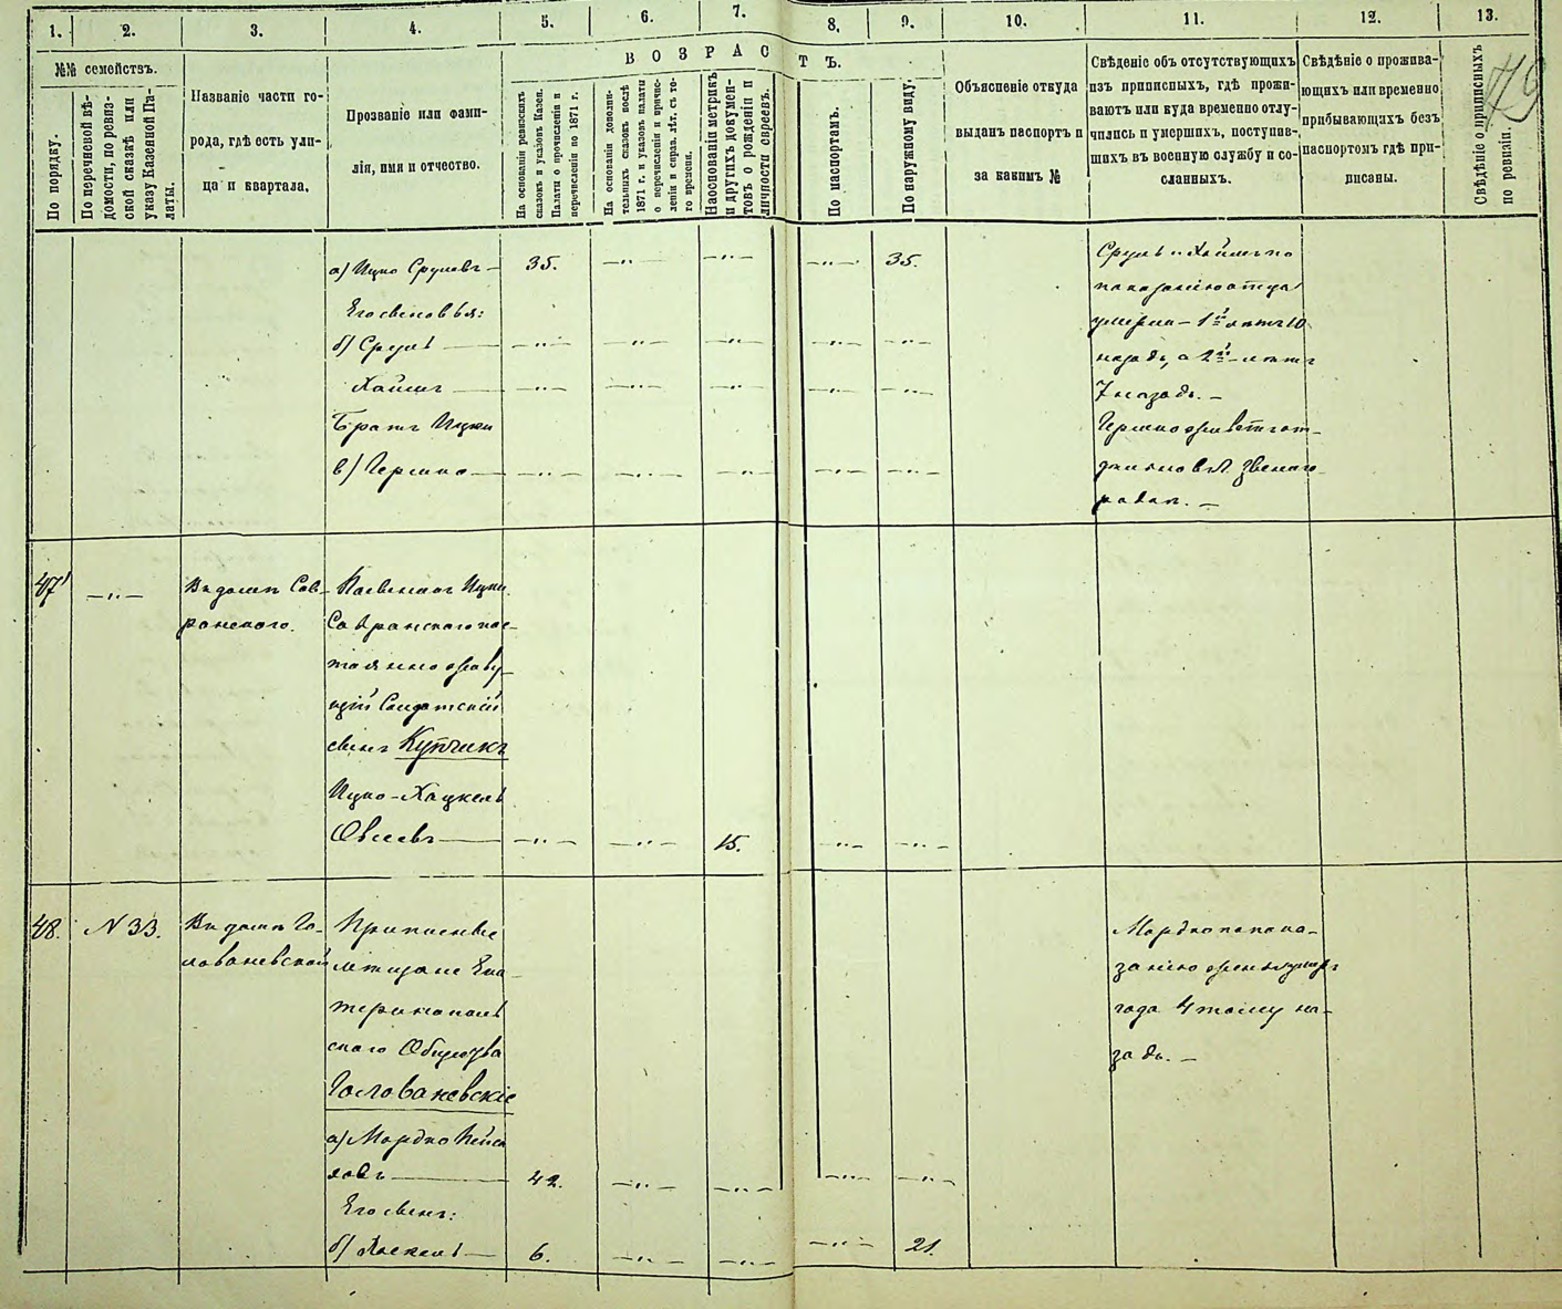 1. 2. 3. 4. 5. 6. 7. 8. 9. 10. 11. 12. 13.
№№ семействъ.
По порядку.
По перечневой вѣ-
домости, по ревиз-
ской сказкѣ или
указу Казенной Па-
латы.
Названіе части го-
рода, гдѣ есть ули-
ца и квартала.
Прозваніе или фами-
лія, имя и отчество.
ВОЗРАСТЪ.
На основаніи ревизскихъ
сказокъ и указовъ Казен.
Палаты о причисленіи и
перечисленіи по 1871 г.
На основаніи дополни-
тельныхъ сказокъ послѣ
1871 г. и указовъ палаты
о перечисленіи и причис-
леніи и справ. лѣт. съ то-
го времени.
На основаніи метрикъ
и другихъ докумен-
товъ о рожденіи и
личности евреевъ.
По паспортамъ.
По наружному виду.
Объясненіе откуда
выданъ паспортъ и
за какимъ №
Свѣденіе объ отсутствующихъ
изъ приписныхъ, гдѣ прожи-
ваютъ или куда временно отлу-
чились и умершихъ, поступив-
шихъ въ военную службу и со-
сланныхъ.
Свѣдѣніе о прожива-
ющихъ или временно
прибывающихъ безъ
паспортомъ гдѣ при-
писаны.
Свѣдѣніе о приписныхъ
по ревизіи.
а) Ицко Срулевъ — 35. —"— —"— —"— 35.
Его сыновья:
б) Сруль — —"— —"— —"— —"— —"—
Хаимъ — —"— —"— —"— —"— —"—
Братъ Ицки
в) Гершко — —"— —"— —"— —"— —"—
Сруль и Хаимъ по
показанію отца
умерли — 1й лѣтъ 10
назадъ, а 2й — лѣтъ
7 назадъ. —
Гершко живетъ от-
дѣльно въ м. Звениго-
родкѣ. —
47 —"— Въ домѣ Сав-
ранского.
Пасынокъ Ицки
Савранского пос-
тоянно живу-
щій Солдатскій
сынъ Купчикъ
Ицко-Хацкель
Овсеевъ — —"— —"— 15. —"— —"—
48. N 33. Въ домѣ Го-
лованевской
Приписные
мѣщане Ека-
теринополь
скаго Общества
Голованевскіе
а) Мордко Пейса
ховъ — 42. —"— —"— —"— —"—
Его сынъ:
б) Хаскель — 6. —"— —"— —"— 21.
Мордко по пока-
занію жены умеръ
года 4 тому на-
задъ. —